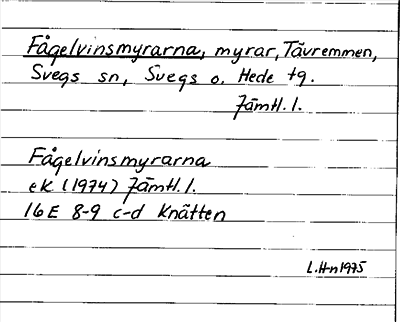 Fågelvinsmyrarna, myrar, Tävremmen,
Svegs sn, Svegs o. Hede tg.
Jämtl. l.
Fågelvinsmyrarna
ek (1974) Jämtl. l.
16E 8-9 c-d Knätten
L.H-n 1975